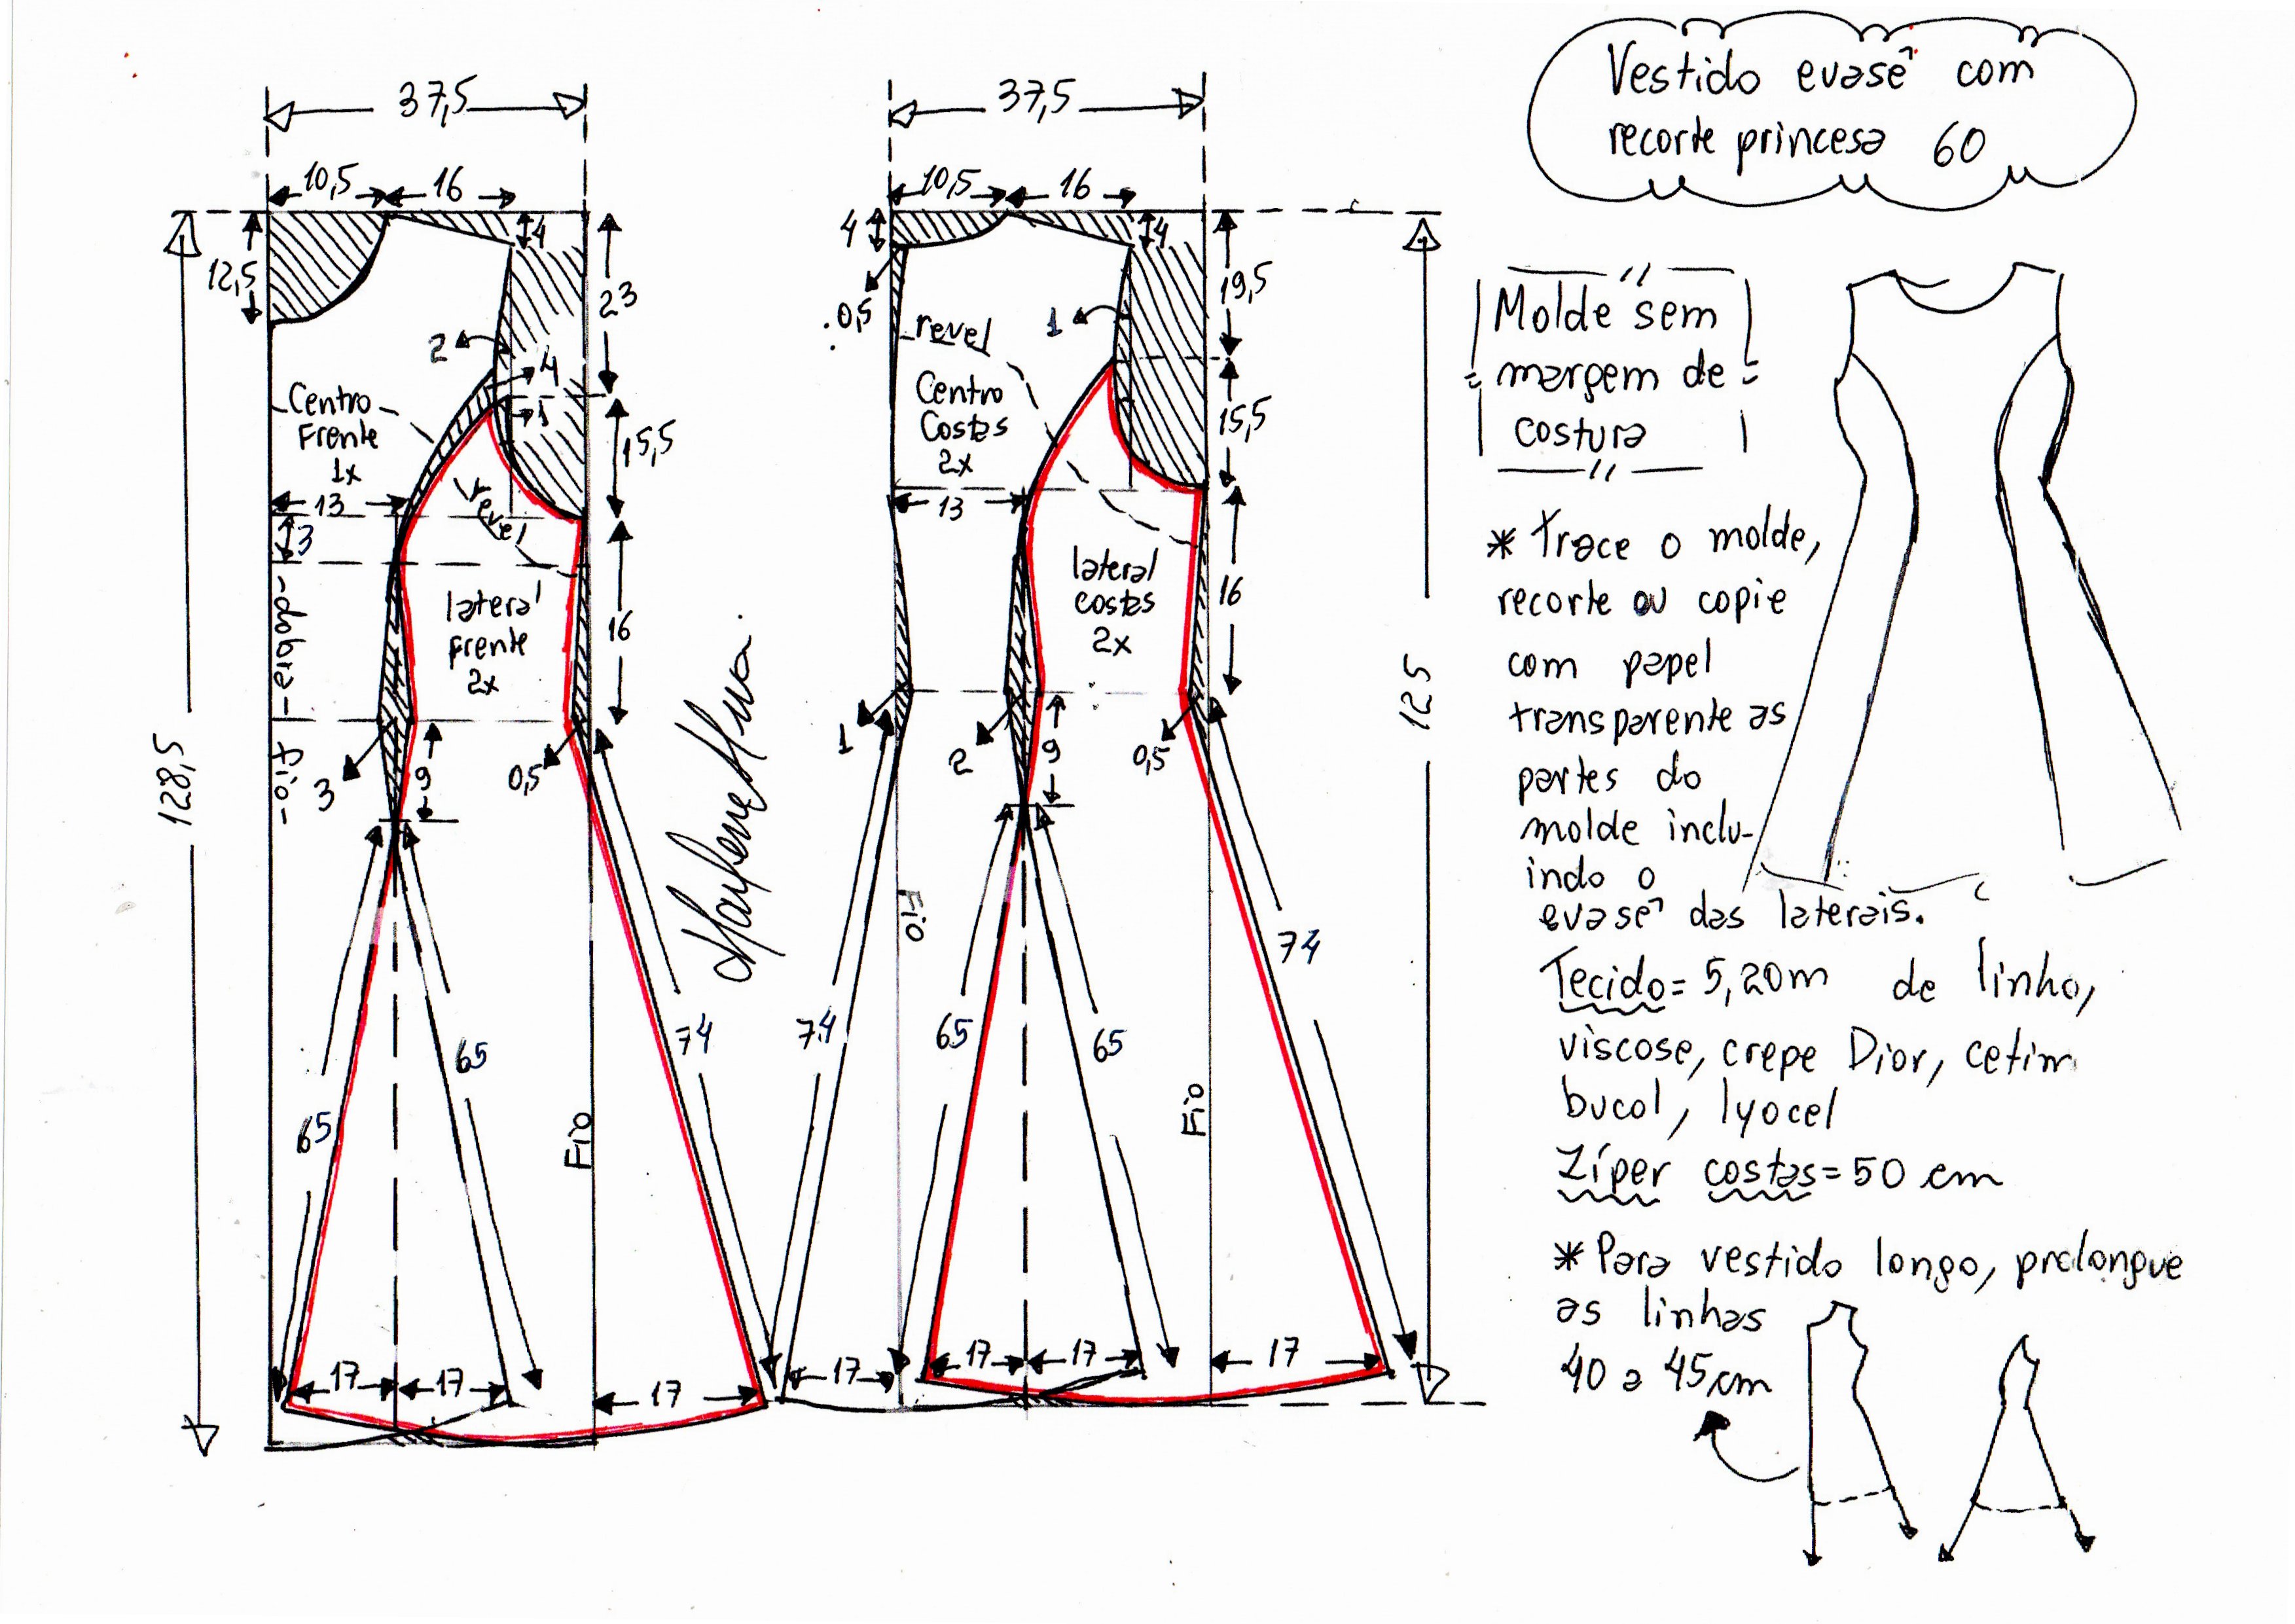 Vestido evasê com
recorte princesa 60
37,5
10,5
16
4
12,5
23
2
4
1
Centro
Frente
1x
15,5
13
3
revel
dobra
fio
lateral
frente
2x
16
3
9
0,5
128,5
65
65
74
Fio
17
17
17
Marlene Mukai
37,5
10,5
16
4
4
0,5
revel
1
19,5
Centro
Costas
2x
15,5
13
lateral
costas
2x
16
1
2
9
0,5
125
Fio
74
65
65
74
Fio
17
17
17
17
Molde sem
margem de
costura
* Trace o molde,
recorte ou copie
com papel
transparente as
partes do
molde inclu-
indo o
evasê das laterais.
Tecido= 5,20m de linho,
viscose, crepe Dior, cetim
bucol, lyocel
Zíper costas=50 cm
* Para vestido longo, prolongue
as linhas
40 a 45cm